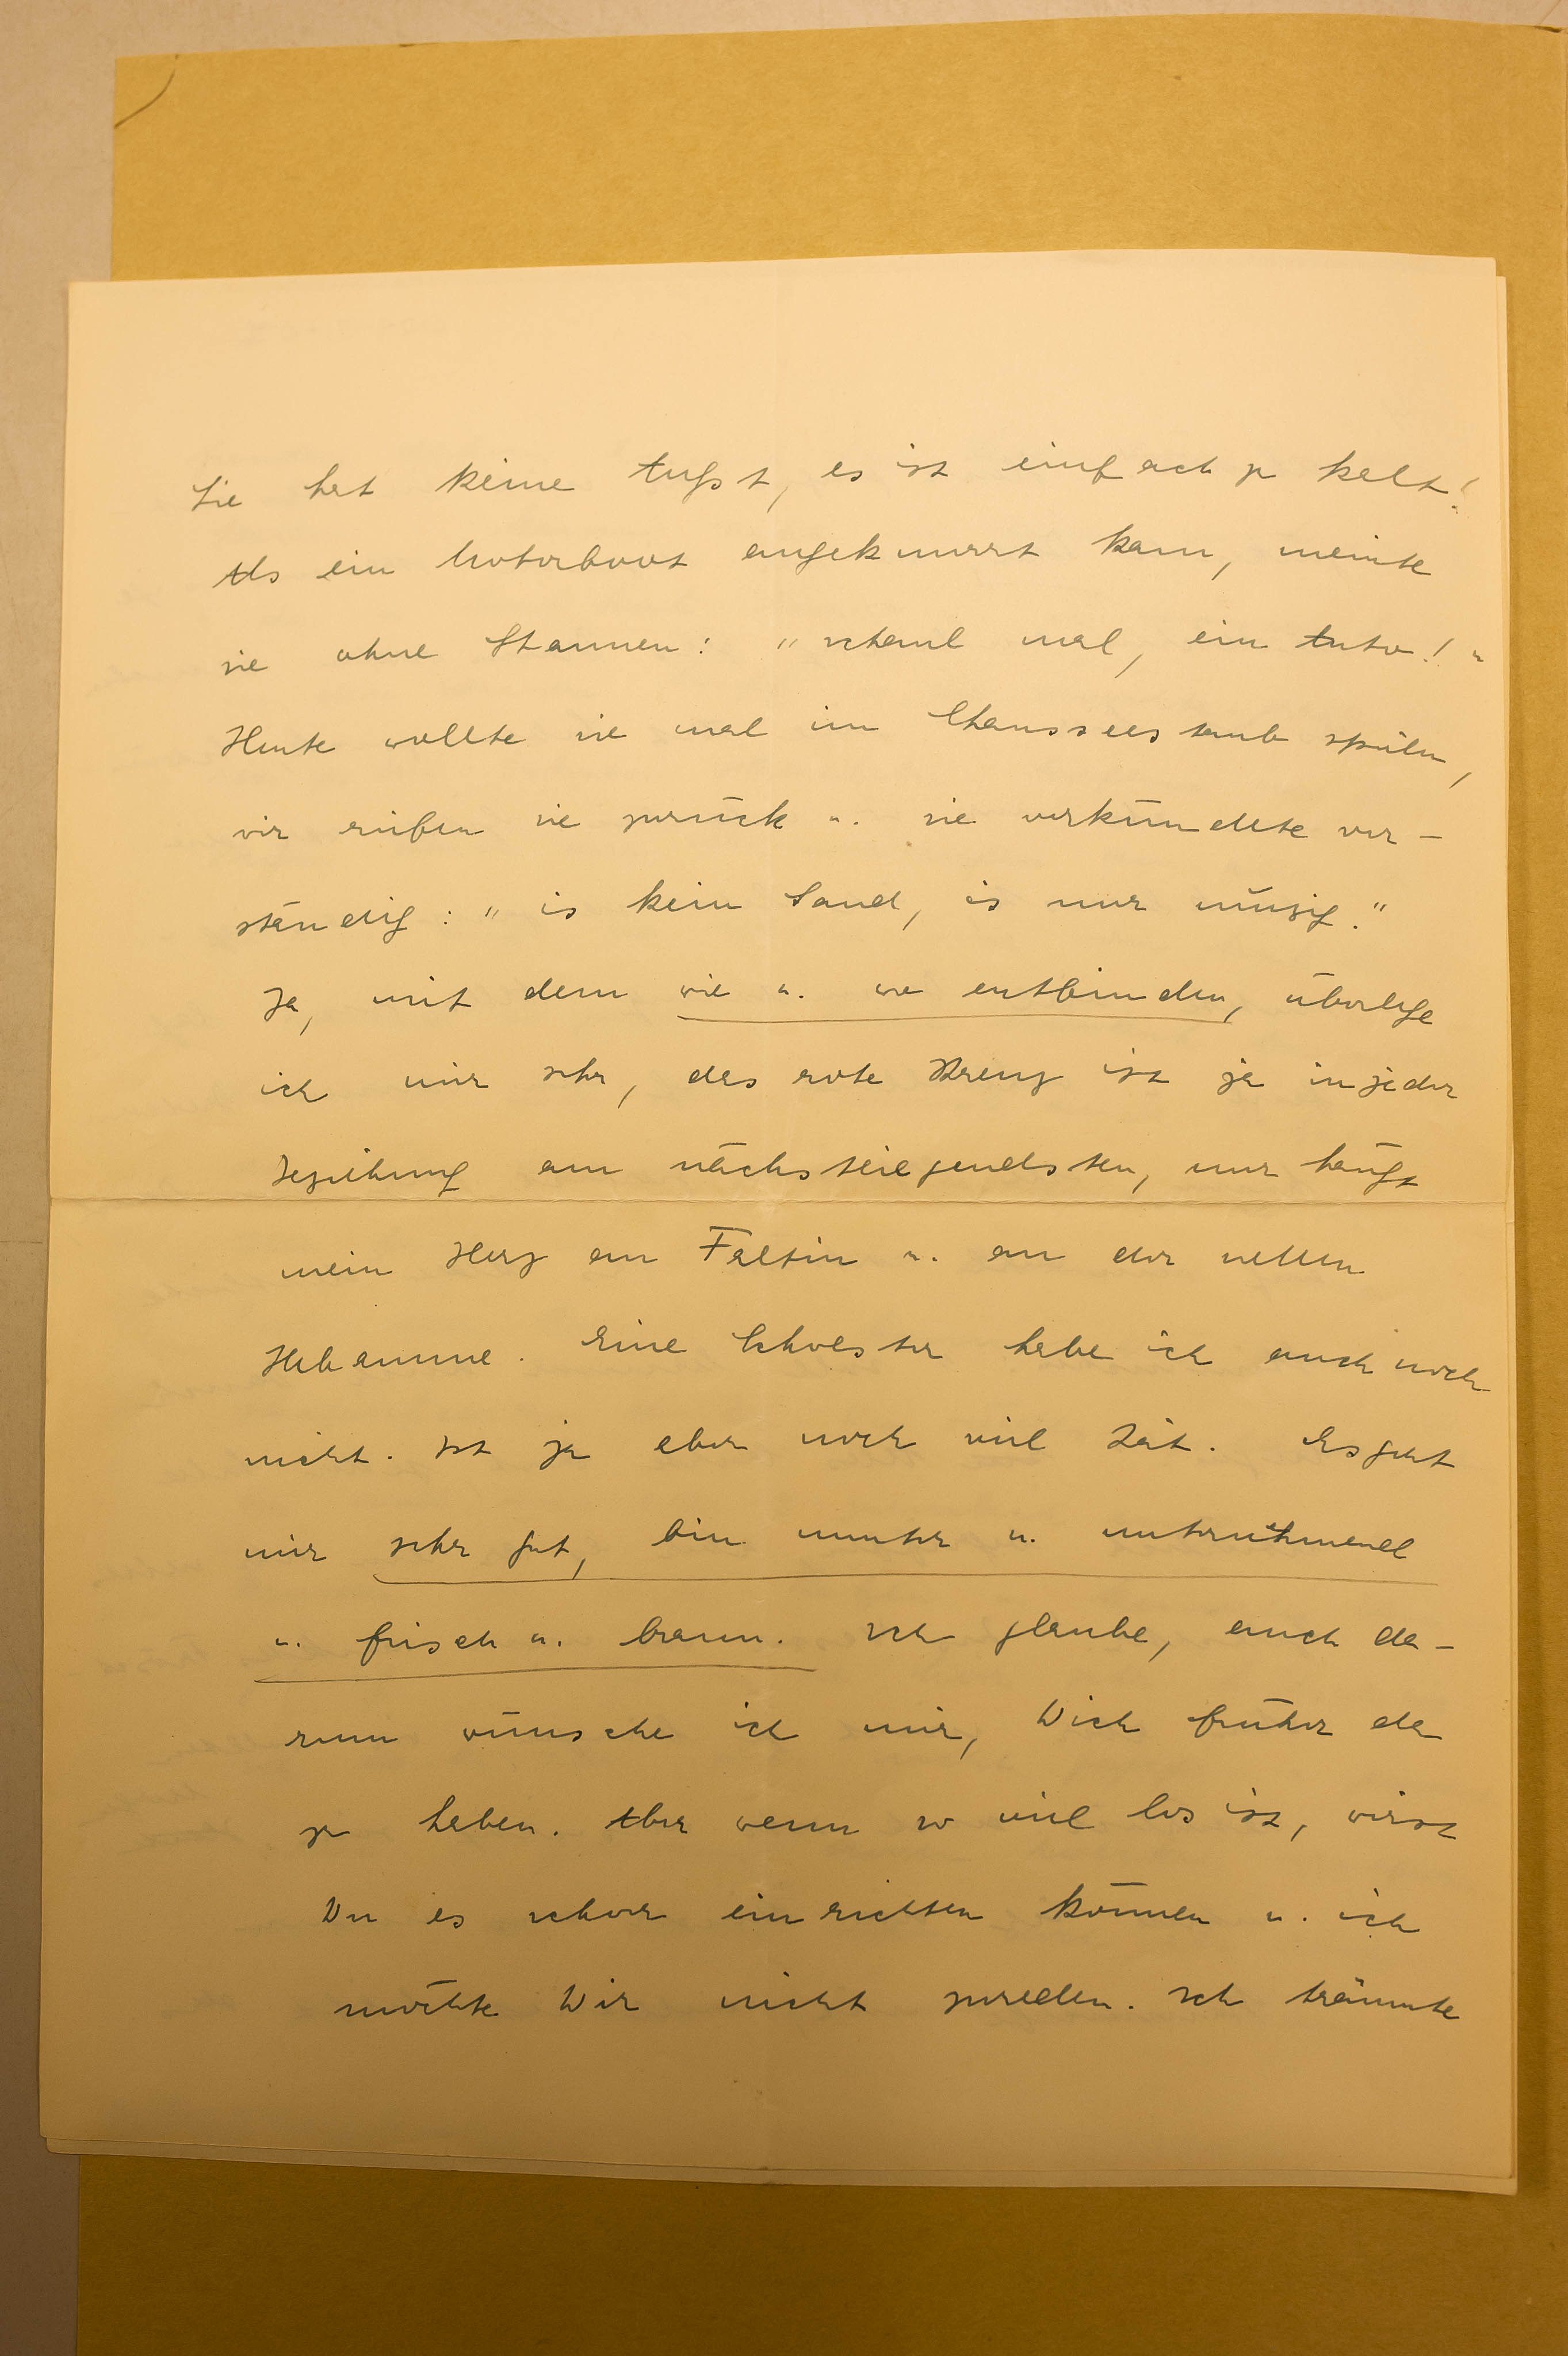 Sie hat keine Angst, es ist einfach zu kalt!
Als ein Motorboot angeknurrt kam, meinte
sie ohne Staunen: "schaul mal, ein Auto!"
Heute wollte sie mal im Chausseestaub spielen,
wir riefen sie zurück u. sie verkündete ver-
ständig: "is kein Sand, is nur müsig."
Ja, mit dem wie u. wo entbinden, überlege
ich mir sehr, das rote Kreuz ist ja in jeder
Beziehung am nächstliegendsten, nur hängt
mein Herz an Faltin u. an der netten
Hebamme. Eine Schwester habe ich auch noch
nicht. Ist ja aber noch viel Zeit. Es geht
mir sehr gut, bin munter u. unternehmend
u. frisch u. braun. Ich glaube, auch da-
rum wünsche ich mir, Dich früher da
zu haben. Aber wenn so viel los ist, wirst
Du es schwer einrichten können u. ich
möchte Dir nicht zureden. Ich träumte